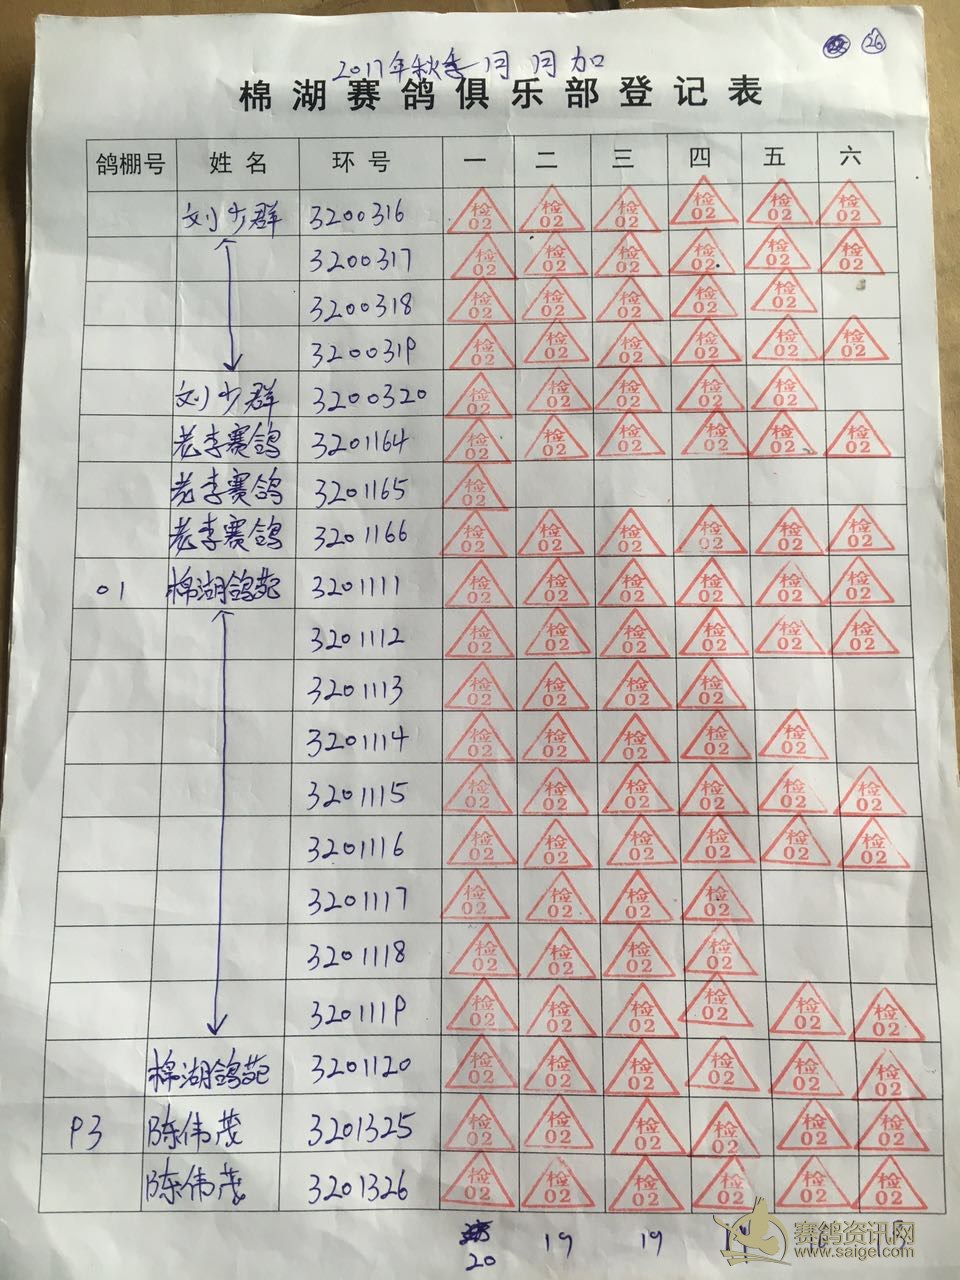 26
2017年秋季月月加
棉湖赛鸽俱乐部登记表
鸽棚号 姓名 环号 一 二 三 四 五 六
刘少群 3200316 检02 检02 检02 检02 检02 检02
3200317 检02 检02 检02 检02 检02 检02
3200318 检02 检02 检02 检02 检02
3200319 检02 检02 检02 检02 检02 检02
刘少群 3200320 检02 检02 检02 检02 检02
老李赛鸽 3201164 检02 检02 检02 检02 检02 检02
老李赛鸽 3201165 检02
老李赛鸽 3201166 检02 检02 检02 检02 检02 检02
01 棉湖鸽苑 3201111 检02 检02 检02 检02 检02 检02
3201112 检02 检02 检02 检02 检02 检02
3201113 检02 检02 检02 检02
3201114 检02 检02 检02 检02 检02
3201115 检02 检02 检02 检02 检02 检02
3201116 检02 检02 检02 检02 检02 检02
3201117 检02 检02 检02 检02
3201118 检02 检02 检02 检02
3201119 检02 检02 检02 检02 检02 检02
棉湖鸽苑 3201120 检02 检02 检02 检02 检02 检02
93 陈伟茂 3201325 检02 检02 检02 检02 检02 检02
陈伟茂 3201326 检02 检02 检02 检02 检02 检02
20 19 19
赛鸽资讯网
www.saigel.com